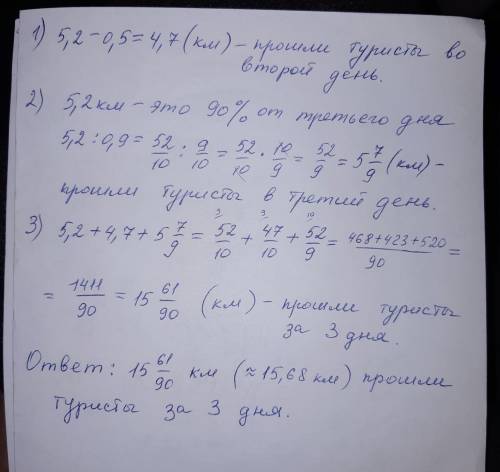 1) 5,2 − 0,5 = 4,7 (км) – прошли туристы во
второй день.
2) 5,2 км – это 90% от третьего дня
5,2 : 0,9 = 52/10 : 9/10 = 52/10 · 10/9 = 52/9 = 5 7/9 (км) –
прошли туристы в третий день.
3) 5,2 + 4,7 + 5 7/9 = 52/10 + 47/10 + 52/9 = 468+423+520/90 =
= 1411/90 = 15 61/90 (км) – прошли туристы
за 3 дня.
Ответ: 15 61/90 км (≈ 15,68 км) прошли
туристы за 3 дня.